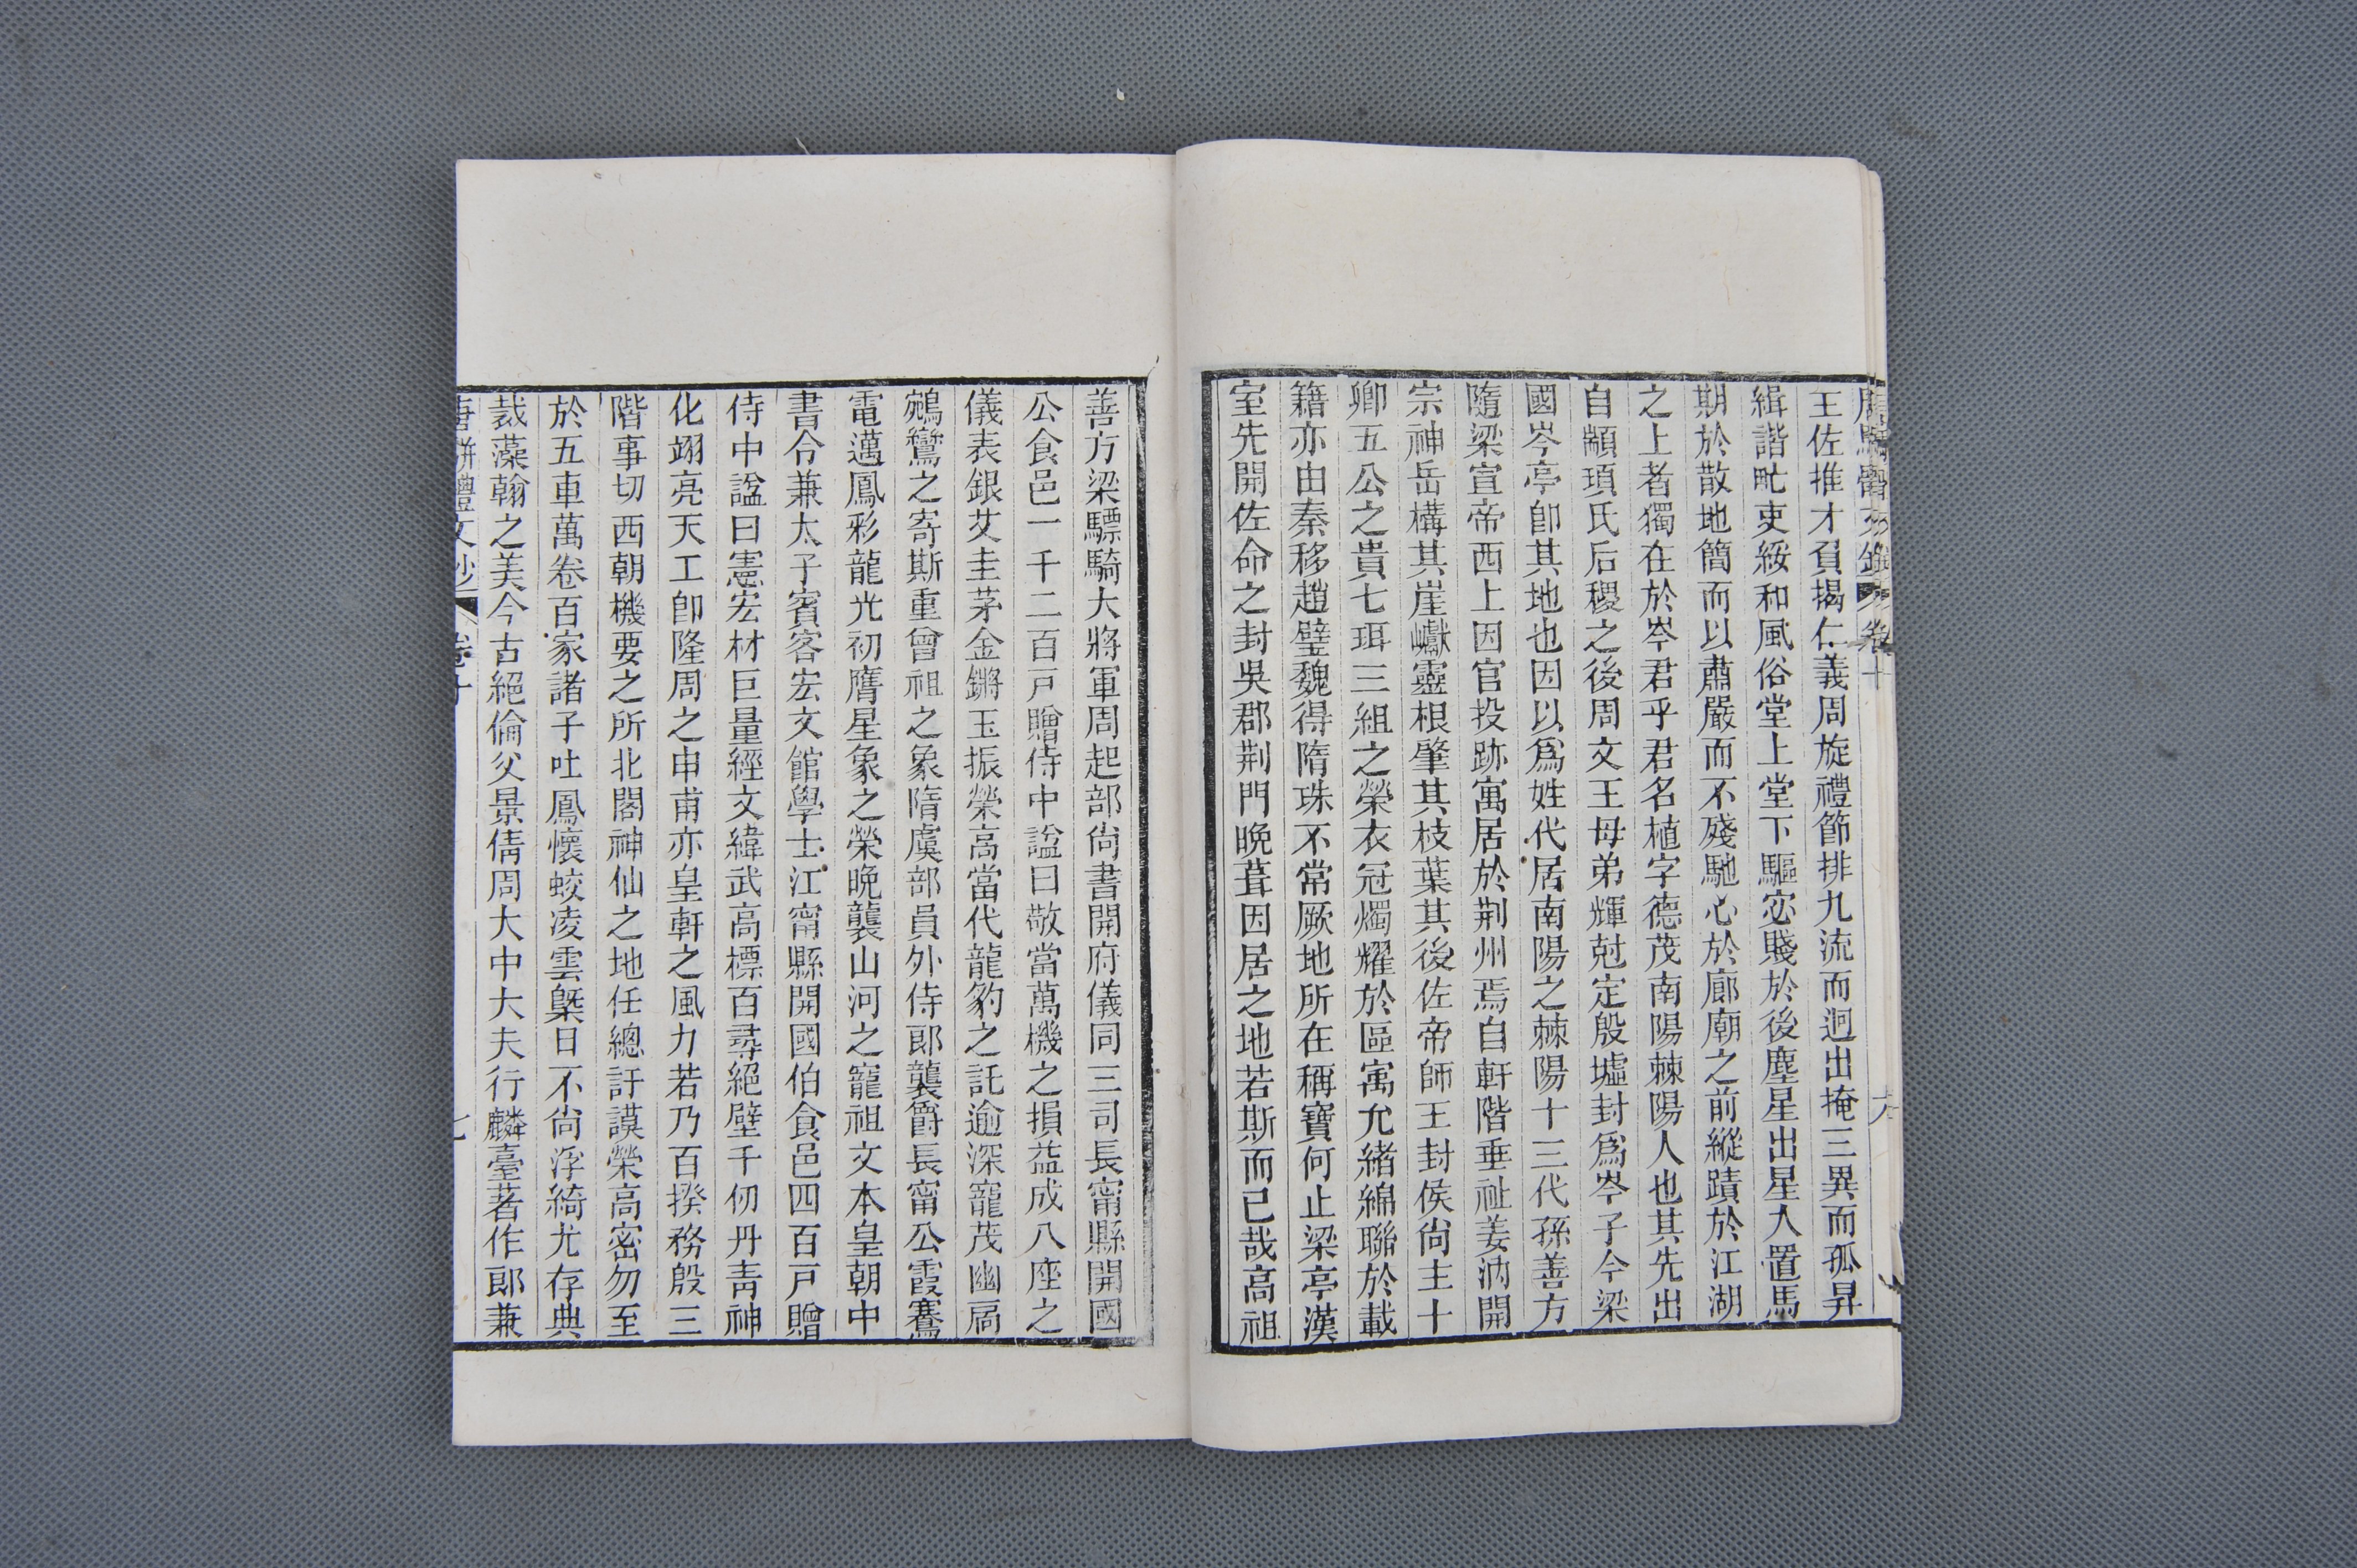 唐駢體文鈔 卷十
王佐推才負揭仁義周旋禮節排九流而迥出掩三異而孤昇
緝諧甿吏綏和風俗堂上堂下驅宓賤於後塵星出星入置馬
期於散地簡而以肅嚴而不殘馳心於廊廟之前縱蹟於江湖
之上者獨在於岑君乎君名植字德茂南陽棘陽人也其先出
自顓頊氏后稷之後周文王母弟輝尅定殷墟封爲岑子今梁
國岑亭卽其地也因以爲姓代居南陽之棘陽十三代孫善方
隨梁宣帝西上因官投跡寓居於荆州焉自軒階垂祉姜汭開
宗神岳構其崖巘靈根肇其枝葉其後佐帝師王封侯尙主十
卿五公之貴七珥三組之榮衣冠燭耀於區寓允緖綿聯於載
籍亦由秦移趙璧魏得隋珠不常厥地所在稱寶何止梁亭漢
室先開佐命之封吳郡荆門晩葺因居之地若斯而已哉高祖
善方梁驃騎大將軍周起部尙書開府儀同三司長甯縣開國
公食邑一千二百戸贈侍中諡曰敬當萬機之損益成八座之
儀表銀艾圭茅金鏘玉振榮高當代龍豹之託逾深寵茂幽扃
鵷鸞之寄斯重曾祖之象隋虞部員外侍郎襲爵長甯公霞騫
電邁鳳彩龍光初膺星象之榮晩襲山河之寵祖文本皇朝中
書令兼太子賓客宏文館學士江甯縣開國伯食邑四百戸贈
侍中諡曰憲宏材巨量經文緯武高標百尋絕壁千仞丹靑神
化翊亮天工卽隆周之申甫亦皇軒之風力若乃百揆務殷三
階事切西朝機要之所北閣神仙之地任總訏謨榮高密勿至
於五車萬卷百家諸子吐鳳懷蛟凌雲槩日不尙浮綺尤存典
裁藻翰之美今古絕倫父景倩周大中大夫行麟臺著作郎兼
唐駢體文鈔 卷十 七